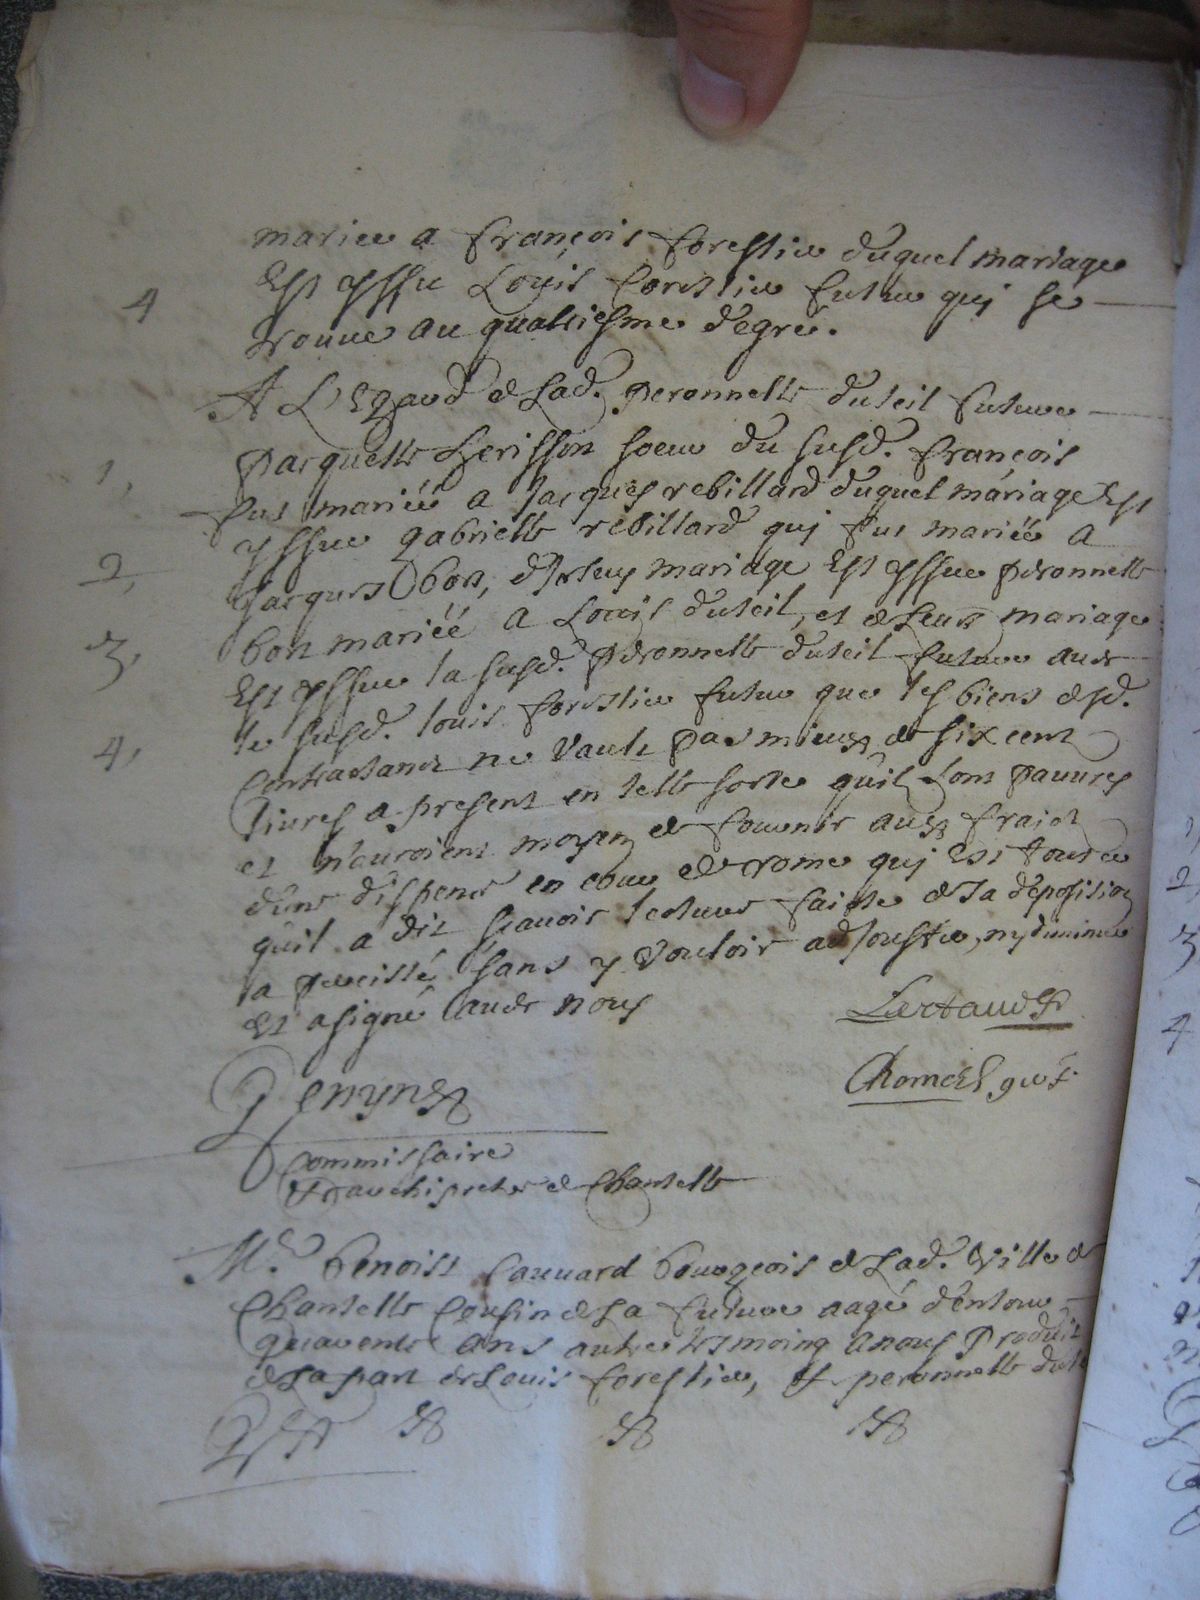 mariee a françois forestier duquel mariage
Est yssu Louis forestier futur quj se
4 trouve au quatriesme degré.
A L'Egard de Lad. peronnelle duteil future
1, Pasquette herisson soeur du susd. françois
fut mariéé a Jacques rebillard duquel mariage Est
yssue gabrielle rebillard quj fut mariéé a
2, Jacques bon, d'Jceluy mariage Est yssue peronnelle
3, bon mariéé a Louis duteil, et de Leur mariage
Est yssue la susd. peronnelle duteil future avec
4, le susd. louis forestier futur que les biens desd.
Contractans ne vault pas mieux de six cent
livres a present en telle sorte qu'il sont pauvres
et n'auroient moyen de fournir aux fraict
d'une dispense en cour de rome quj Est tout ce
qu'il a dit scavoir lecture faicte de sa deposition
a persisté sans y vouloir adjouster, ny diminuer
Et a signé avec nous
Chomel gref.
Commissaire
Archipretre de Chantelle
Me. benoist Cauuard bourgeois de Lad. Ville de
Chantelle Cousin de La future aagé d'entour
quarente ans autre tesmoing a nous produit
de la part de Louis forestier, et peronnelle